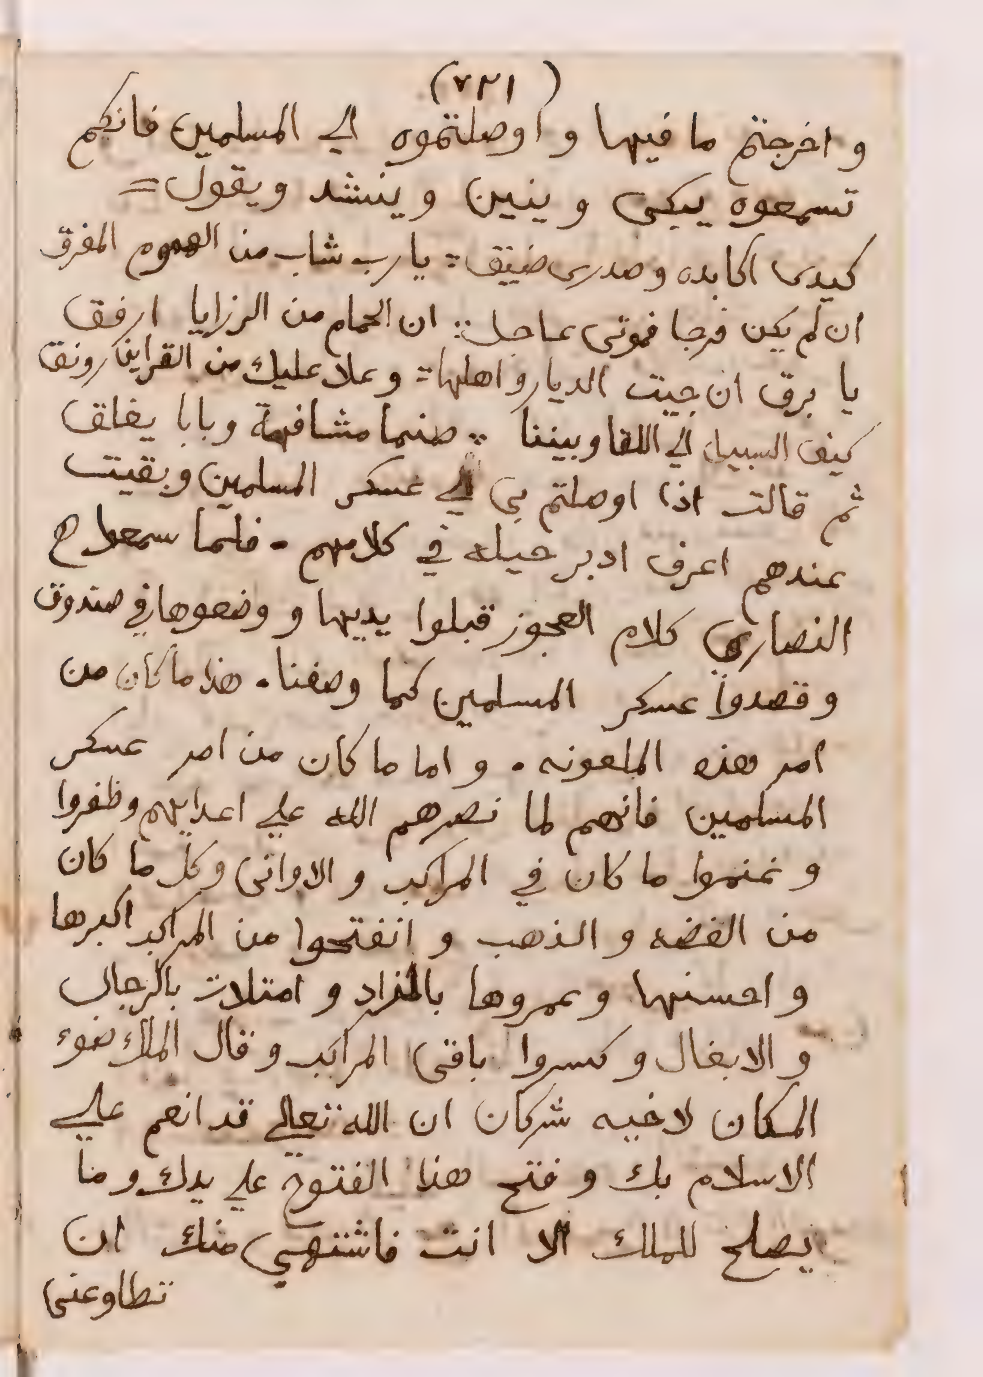 (٧٢١)
و اخرجتم ما فيها و اوصلتموه الي المسلمين فانكم
تسمعوه يبكى و ينين و ينشد و يقول =
كبدى اكابده وصدرى ضيق ∴ يا رب شاب من الهموم المفرق
ان لم يكن فرجا فموتى عاجل ∴ ان الحمام من الرزايا ارفق
يا برق ان جيت الديار و اهلها ∴ و علا عليك من رونق
كيف السبيل الي اللقا وبيننا ∴ مشافهة وبابا يغلق
ثم قالت اذا اوصلتم بي الي عسكر المسلمين وبقيت
عندهم اعرف ادبر حيله في كلامهم . فلما سمعوا ح
النصاري كلام العجوز قبلوا يديها و وضعوها في صندوق
و قصدوا عسكر المسلمين كما وصفنا . هذا ما كان من
امر هذه الملعونه . و اما ما كان من امر عسكر
المسلمين فانهم لما نصرهم الله علي اعدايهم وظفروا
و غنموا ما كان في المراكب و الاوانى وكل ما كان
من الفضه و الذهب و انفتحوا من المراكب اكبرها
و احسنها و عمروها بالزاد و امتلات بالرجال
و الابغال و كسروا باقى المراكب و قال الملك ضوء
المكان لاخيه شركان ان الله تعالي قد انعم علي
الاسلام بك و فتح هذا الفتوح علي يدك و ما
يصلح للملك الا انت فاشتهي منك ان
تطاوعنى